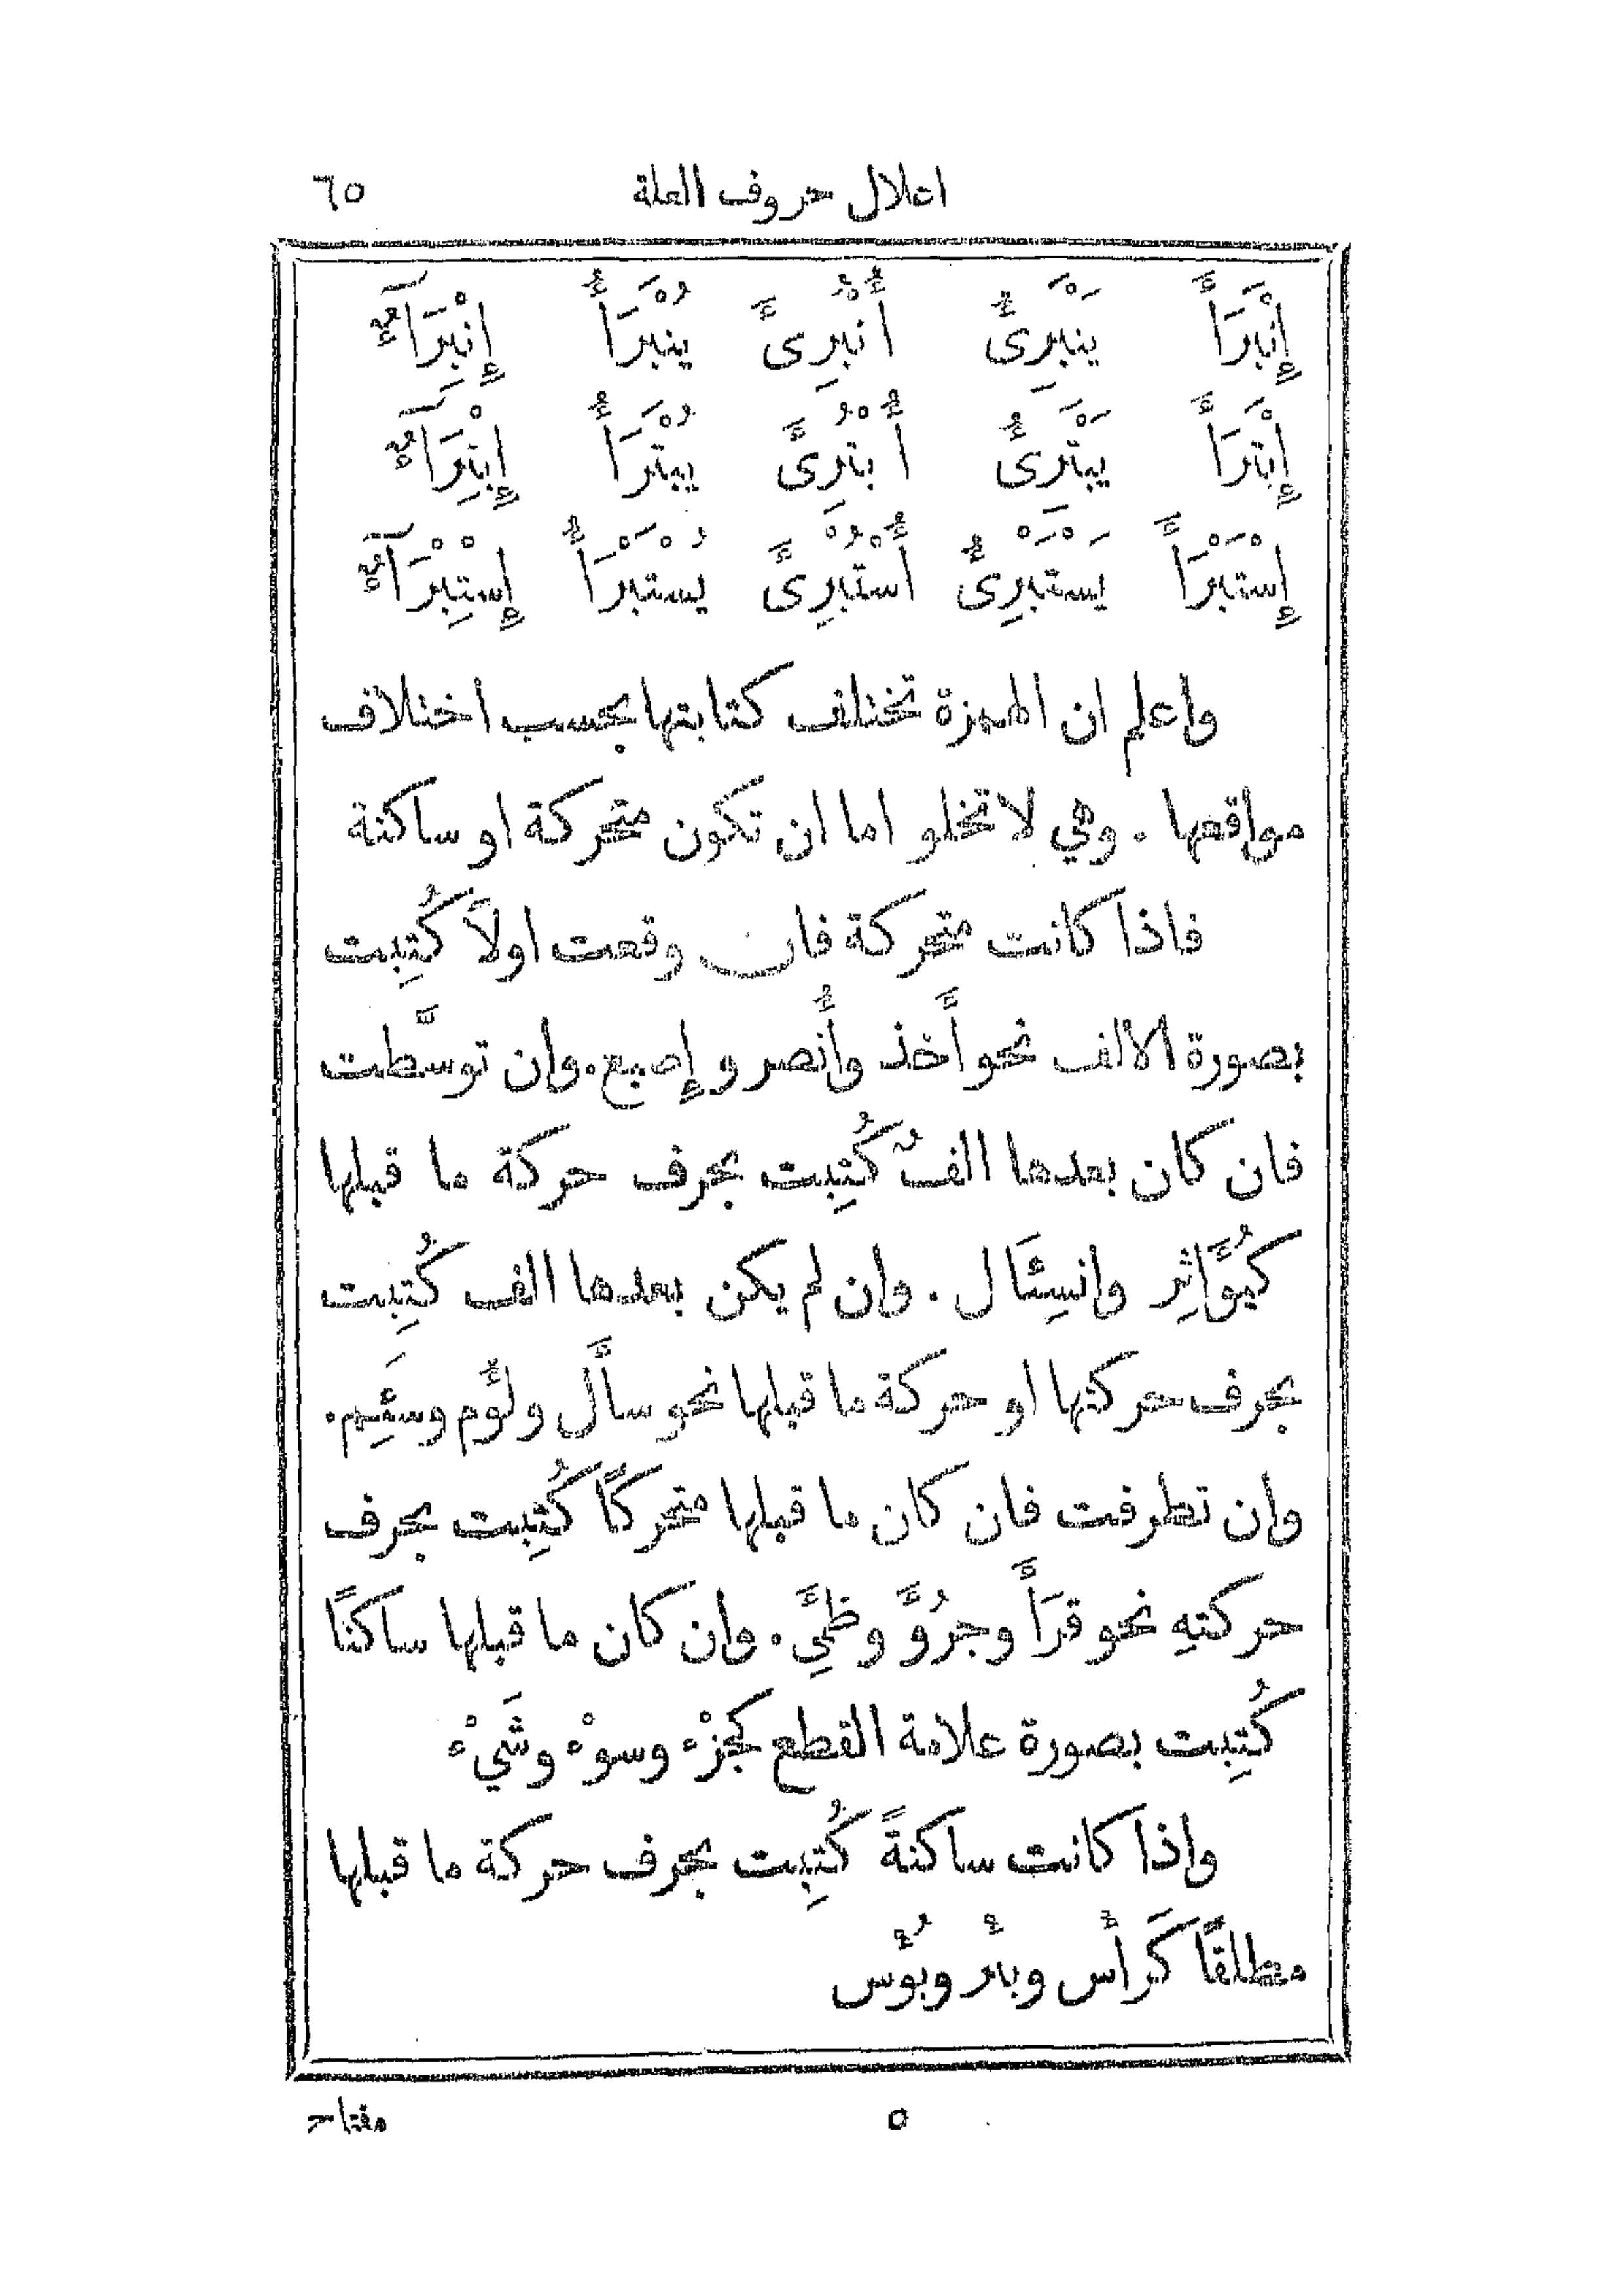 اعلال حروف العلة ٦٥
إِنْبَرَأَ يَنْبَرِئُ أُنْبُرِئَ يُنْبَرَأُ إِنْبِرَآءٌ
إِبْتَرَأَ يَبْتَرِئُ أُبْتُرِئَ يُبْتَرَأُ إِبْتِرَآءٌ
إِسْتَبْرَأَ يَسْتَبْرِئُ أُسْتُبْرِئَ يُسْتَبْرَأُ إِسْتِبْرَآءٌ
واعلم ان الهمزة تختلف كتابتها بحسب اختلاف
مواقعها . وهي لا تخلو اما ان تكون متحركة او ساكنة
فاذا كانت متحركة فان وقعت اولاً كُتِبت
بصورة الالف نحو أَخذ وأُنصر وإِصبع . وان توسَّطت
فان كان بعدها الفٌ كُتِبت بحرف حركة ما قبلها
كيُؤَاثِر وانسِئَال . وان لم يكن بعدها الف كُتِبت
بحرف حركتها او حركة ما قبلها نحو سأَل ولؤُم وسَئِم .
وان تطرفت فان كان ما قبلها متحركًا كُتِبت بحرف
حركتهِ نحو قرَأَ وجرُؤَ وظَمِئَ . وان كان ما قبلها ساكنًا
كُتِبت بصورة علامة القطع كجزْء وسوْء وشَيْء
واذا كانت ساكنةً كُتِبت بحرف حركة ما قبلها
مطلقًا كَرأْس وبئْر وبُؤْس
٥ مفتاح